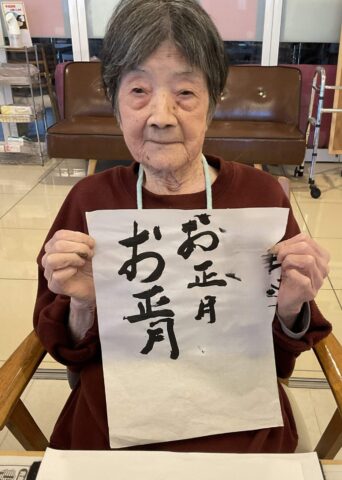 お正月
お正月